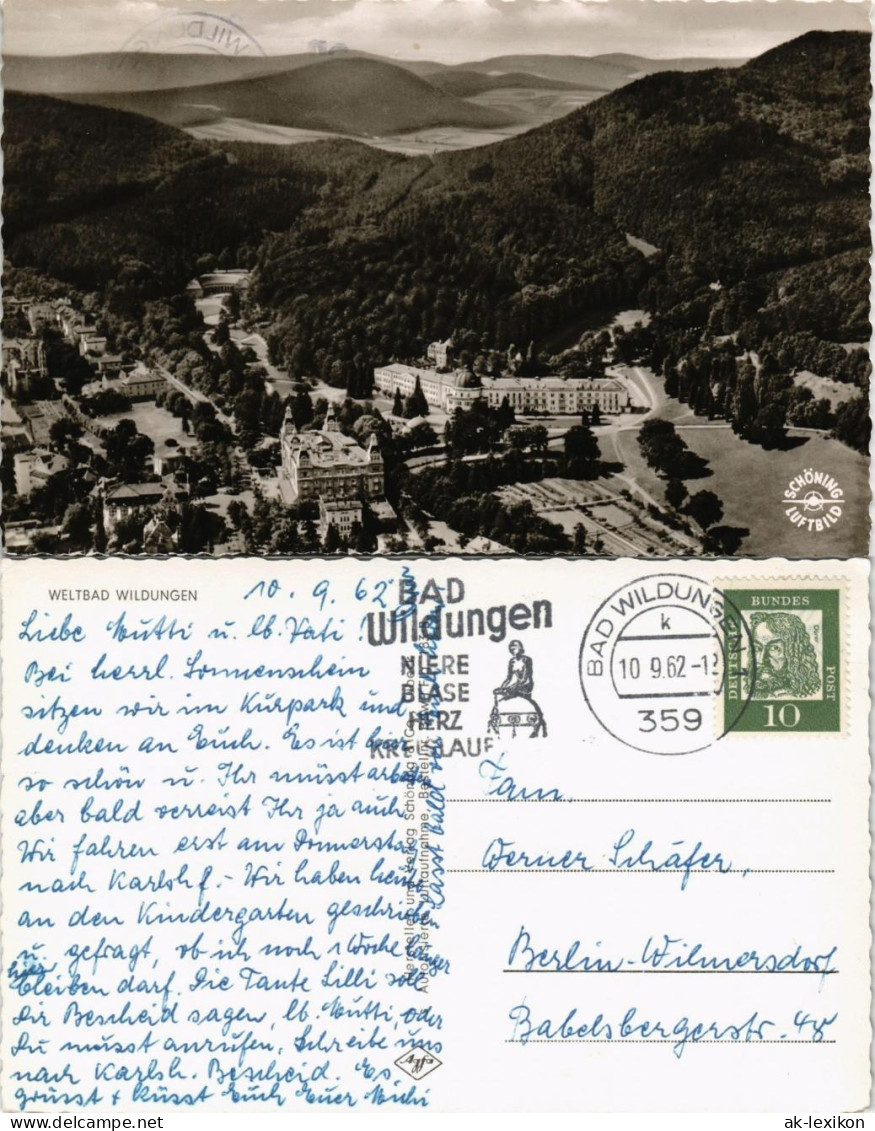 SCHÖNING
LUFTBILD
WELTBAD WILDUNGEN
10. 9. 62
Liebe Mutti u. lb. Vati!
Bei herrl. Sonnenschein
sitzen wir im Kurpark und
denken an Euch. Es ist hier
so schön u. Ihr müsst arbeiten
aber bald verreist Ihr ja auch.
Wir fahren erst am Donnerstag
nach Karlshf. - Wir haben heute
an den Kindergarten geschrieben
u. gefragt, ob ich noch 1 Woche länger
hier bleiben darf. Die Tante Lilli soll
Dir Bescheid sagen, lb. Mutti, oder
Du musst anrufen. Schreibe uns
nach Karlsh. Bescheid. Es
grüsst + küsst Euch Euer Michi
Lasst bald
BAD
Wildungen
NIERE
BLASE
HERZ
KREISLAUF
BAD WILDUNGEN 1
k
10.9.62-12
359
DEUTSCHE BUNDESPOST
Dürer
10
Fam.
Werner Schäfer,
Berlin-Wilmersdorf
Babelsbergerstr. 48
Agfa
ak-lexikon.com